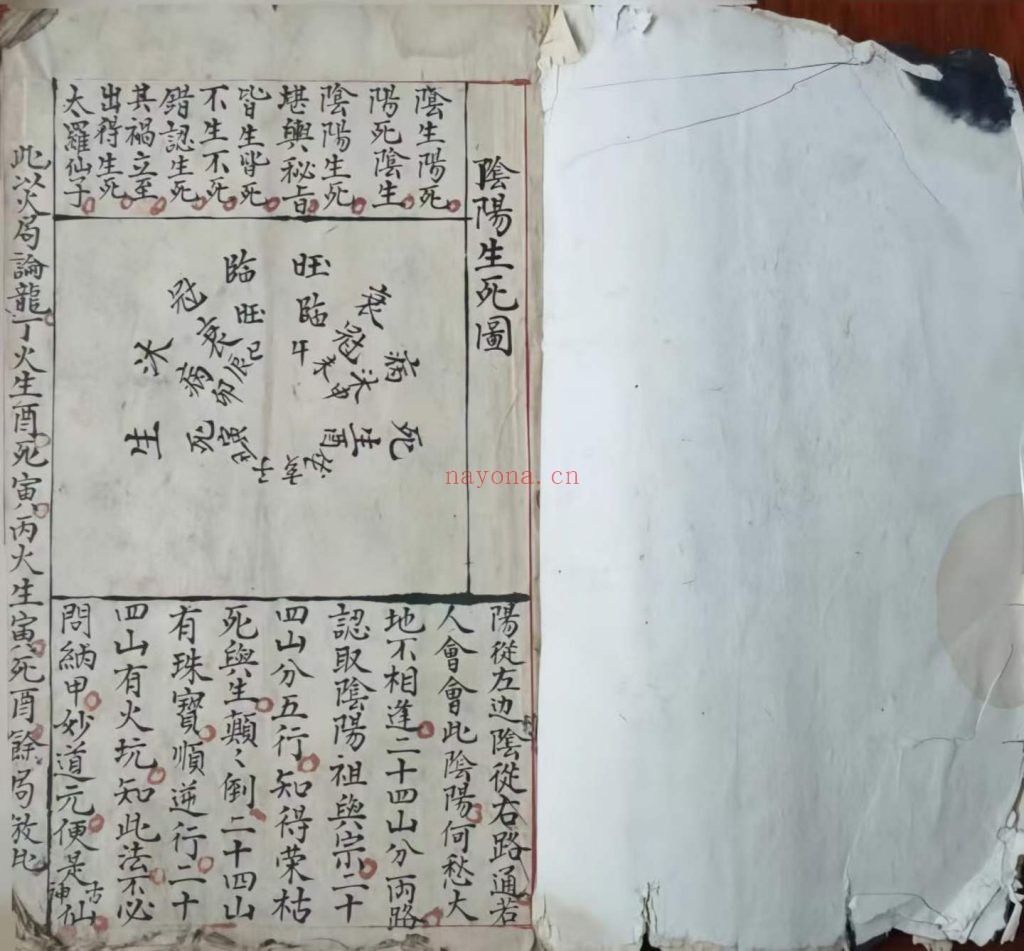 陰陽生死圖
陰生陽死
陽死陰生
陰陽生死
堪輿秘旨
皆生皆死
不生不死
錯認生死
其禍立至
出得生死
太羅仙子
生沐冠臨旺衰病死
死病衰旺臨冠沐生
子丑寅卯辰巳午未申酉戌亥
陽從左边陰從右路通若
人會會此陰陽何愁大
地不相逢二十四山分両路
認取陰陽祖與宗二十
四山分五行知得荣枯
死與生顛〻倒二十四山
有珠寶順逆行二十
四山有火坑知此法不必
問納甲妙道元便是古神仙
此以火局論龍丁火生酉死寅丙火生寅死酉餘局放此
nayona.cn